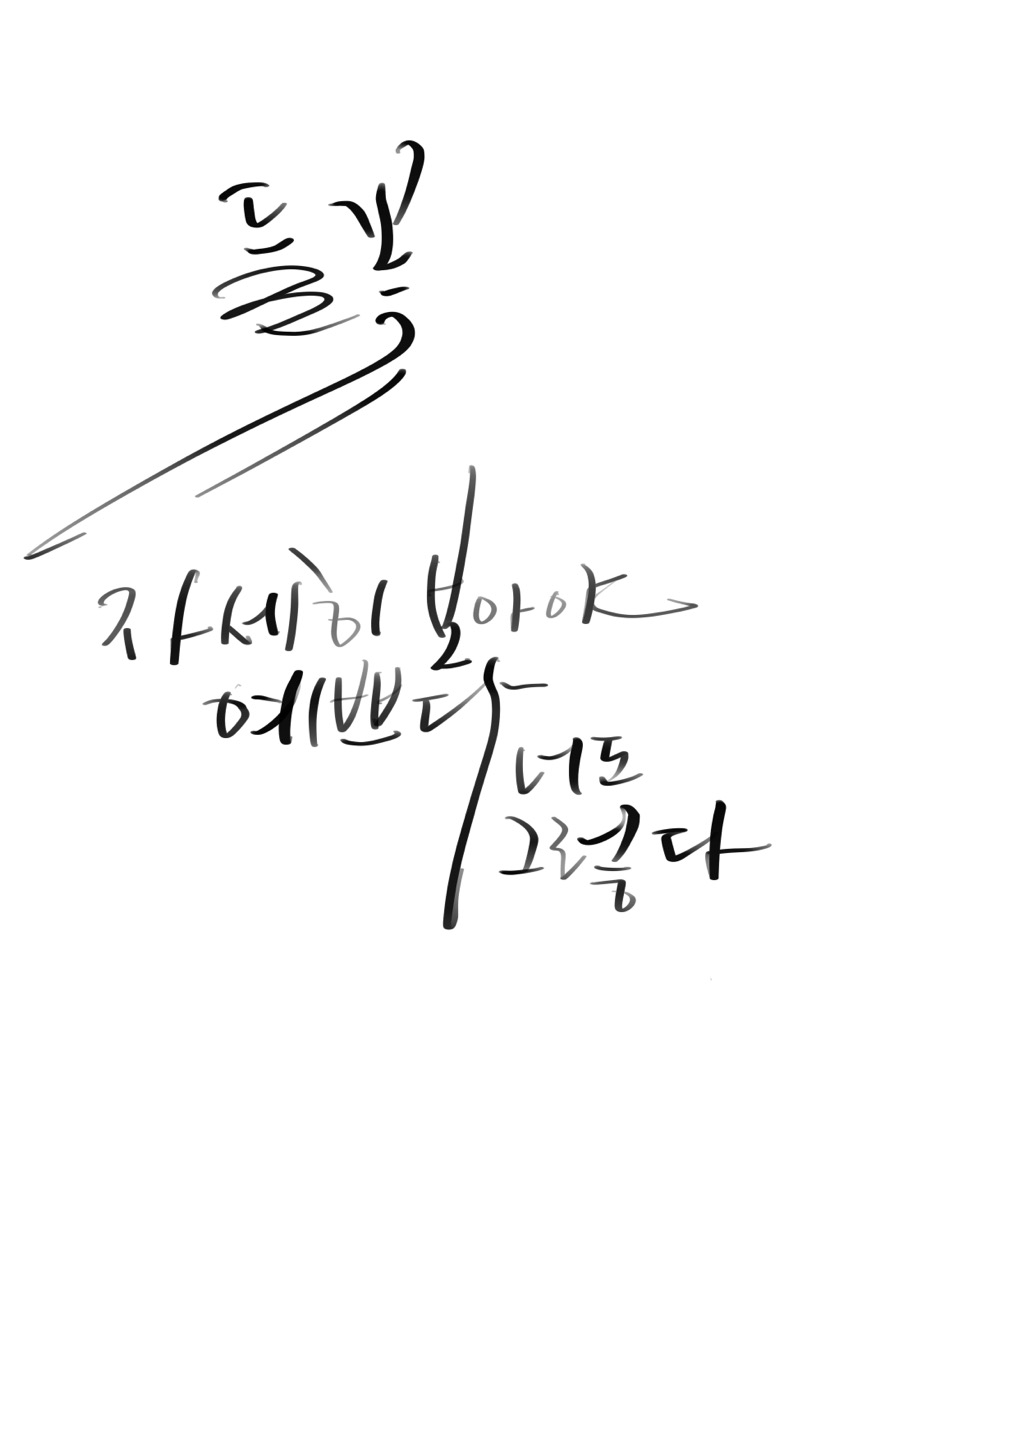 들꽃
자세히 보아야
예쁜다
너도
그렇다